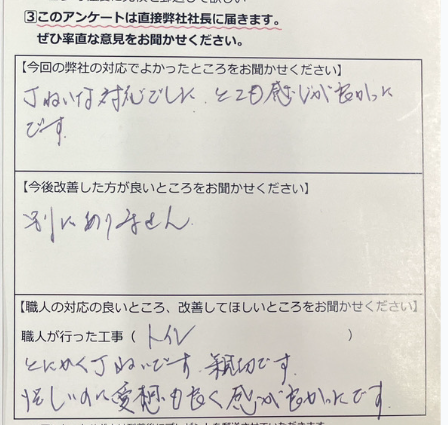 ③このアンケートは直接弊社社長に届きます。
ぜひ率直な意見をお聞かせください。
【今回の弊社の対応でよかったところをお聞かせください】
丁ねいな対応でした とても感じが良かった
です。
【今後改善した方が良いところをお聞かせください】
別にありません
【職人の対応の良いところ、改善してほしいところをお聞かせください】
職人が行った工事（ トイレ ）
とにかく丁ねいです。親切です。
忙しいのに愛想も良く感じが良かったです。